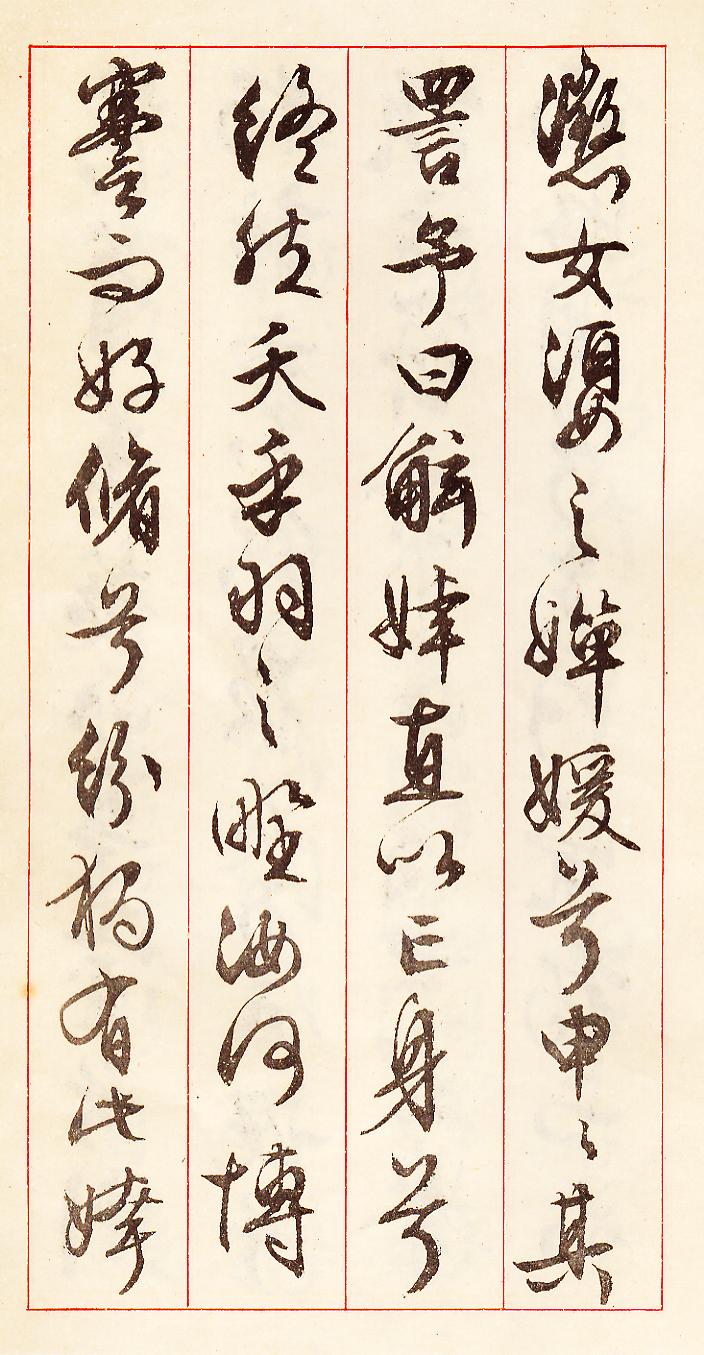 懲女嬃之嬋媛兮申〻其
詈予曰鯀婞直以亡身兮
終然夭乎羽之野汝何博
謇而好脩兮紛獨有此姱